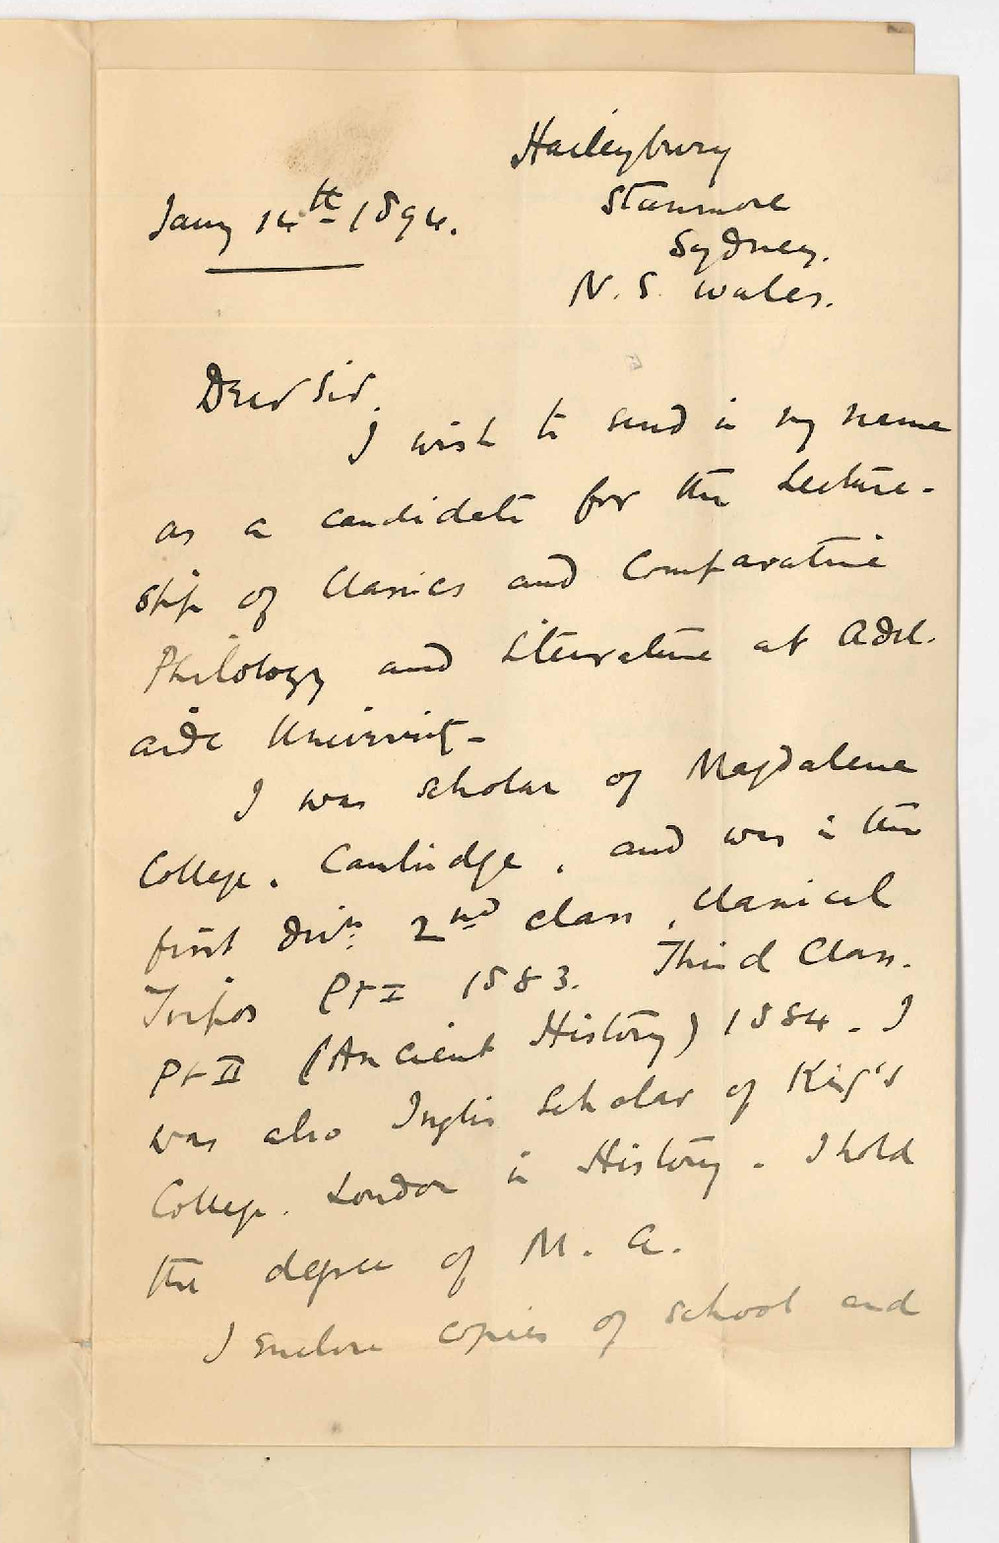 Haileybury
Stanmore
Jany 14th 1894.
Sydney.
N. S. Wales.
Dear Sir,
I wish to send in my name
as a candidate for the Lecture-
ship of Classics and Comparative
Philology and Literature at Adel-
aide University -
I was scholar of Magdalene
College, Cambridge, and was in the
first Divn: 2nd class, Classical
Tripos Pt I 1883. Third Class.
Pt II (Ancient History) 1884. I
was also Inglis Scholar of King's
College. London in History. I hold
the degree of M. A.
I enclose copies of school and